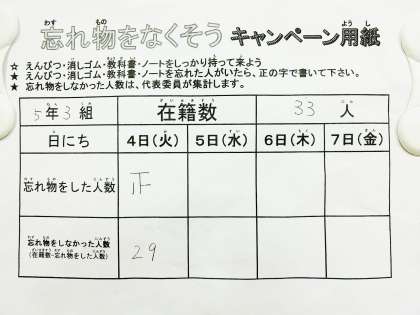 忘れ物をなくそう キャンペーン用紙
☆ えんぴつ・消しゴム・教科書・ノートをしっかり持って来よう
★ えんぴつ・消しゴム・教科書・ノートを忘れた人がいたら、正の字で書いて下さい。
★ 忘れ物をしなかった人数は、代表委員が集計します。
5年3組 在籍数 33人
日にち 4日(火) 5日(水) 6日(木) 7日(金)
忘れ物をした人数 正
忘れ物をしなかった人数 29
(在籍数-忘れ物をした人数)